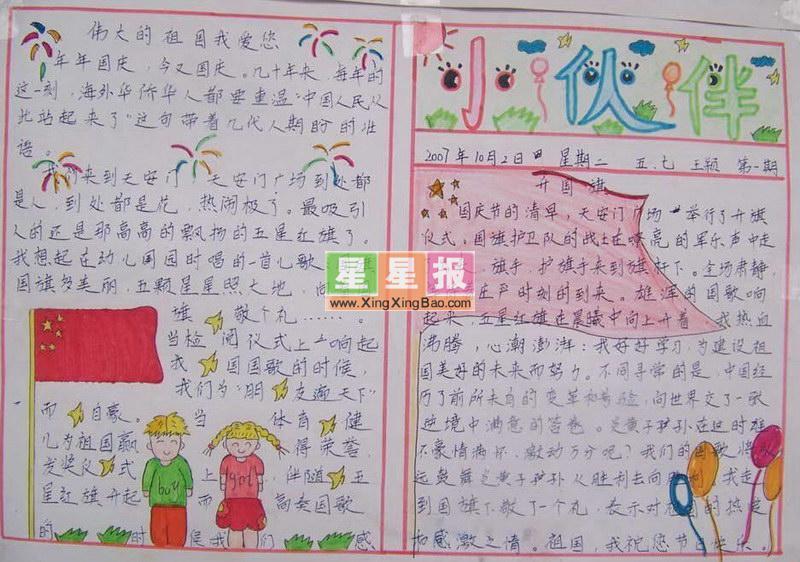 伟大的祖国我爱您
年年国庆，今又国庆。几十年来，每年的
这一刻，海外华侨华人都要重温"中国人民从
此站起来了"这句带着几代人期盼的壮
语。
我们来到天安门，天安门广场到处都
是人，到处都是花，热闹极了。最吸引
人的还是那高高的飘扬的五星红旗了。
我想起在幼儿园时唱的一首儿歌
国旗多美丽，五颗星星照大地
旗 敬个礼……。
当检阅仪式上一响起
我国国歌的时候，
我们为"朋友遍天下"
而自豪。当体育健
儿为祖国赢得荣誉，
发奖仪式上，伴随五
星红旗升起而高奏国歌
的时候我们感
boy
girl
小伙伴
2007年10月2日 星期二 五.七 王颖 第一期
升国旗
国庆节的清早，天安门广场举行了升旗
仪式。国旗护卫队的战士在嘹亮的军乐声中走
，旗手，护旗手来到旗杆下。全场肃静
庄严时刻的到来。雄浑的国歌响
起来，五星红旗在晨曦中向上升着，我热血
沸腾，心潮澎湃：我好好学习，为建设祖
国美好的未来而努力。不同寻常的是，中国经
历了前所未有的变革和考验，向世界交了一张
逆境中满意的答卷。炎黄子孙在此时谁
不豪情满怀，激动万分呢？我们的国歌将永
远鼓舞炎黄子孙从胜利走向胜利，我走
到国旗下敬了一个礼，表示对祖国的热爱
和感激之情。祖国，我祝您节日快乐。
星星报
www.XingXingBao.com